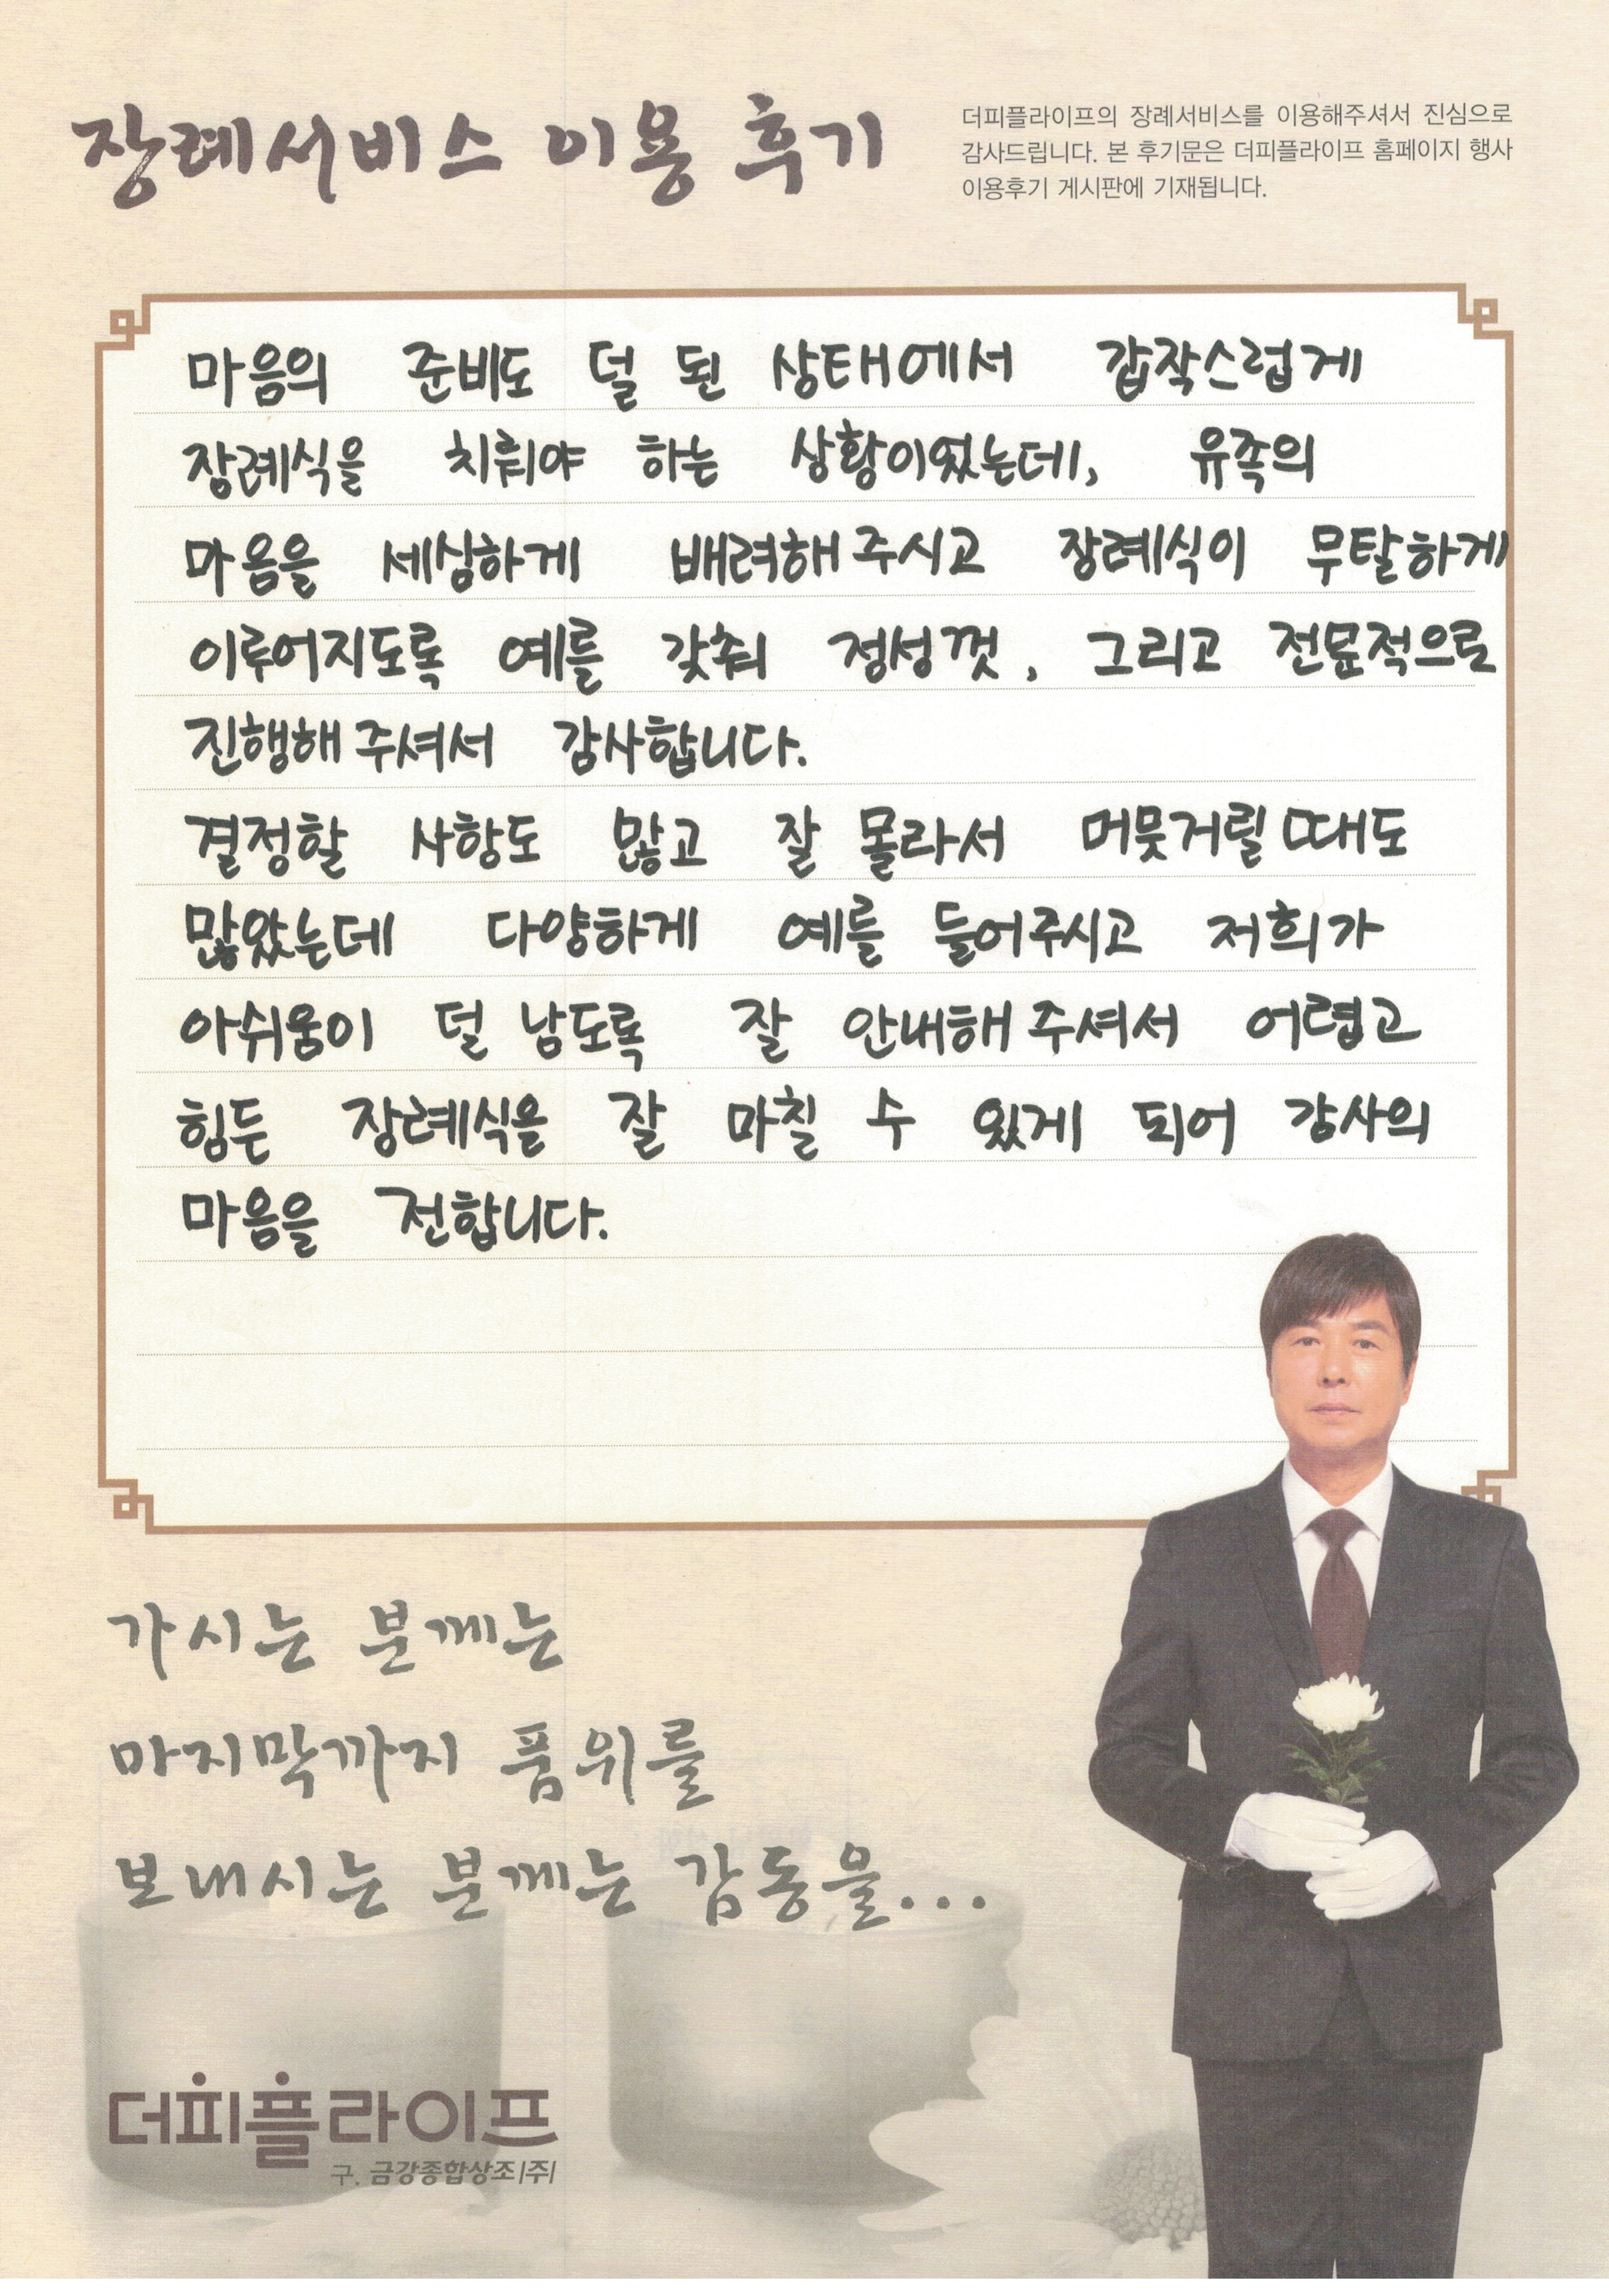 장례서비스 이용 후기
더피플라이프의 장례서비스를 이용해주셔서 진심으로
감사드립니다. 본 후기문은 더피플라이프 홈페이지 행사
이용후기 게시판에 기재됩니다.
마음의 준비도 덜 된 상태에서 갑작스럽게
장례식을 치뤄야 하는 상황이었는데, 유족의
마음을 세심하게 배려해 주시고 장례식이 무탈하게
이루어지도록 예를 갖춰 정성껏, 그리고 전문적으로
진행해 주셔서 감사합니다.
결정할 사항도 많고 잘 몰라서 머뭇거릴 때도
많았는데 다양하게 예를 들어주시고 저희가
아쉬움이 덜 남도록 잘 안내해 주셔서 어렵고
힘든 장례식을 잘 마칠 수 있게 되어 감사의
마음을 전합니다.
가시는 분께는
마지막까지 품위를
보내시는 분께는 감동을...
더피플라이프
구. 금강종합상조(주)